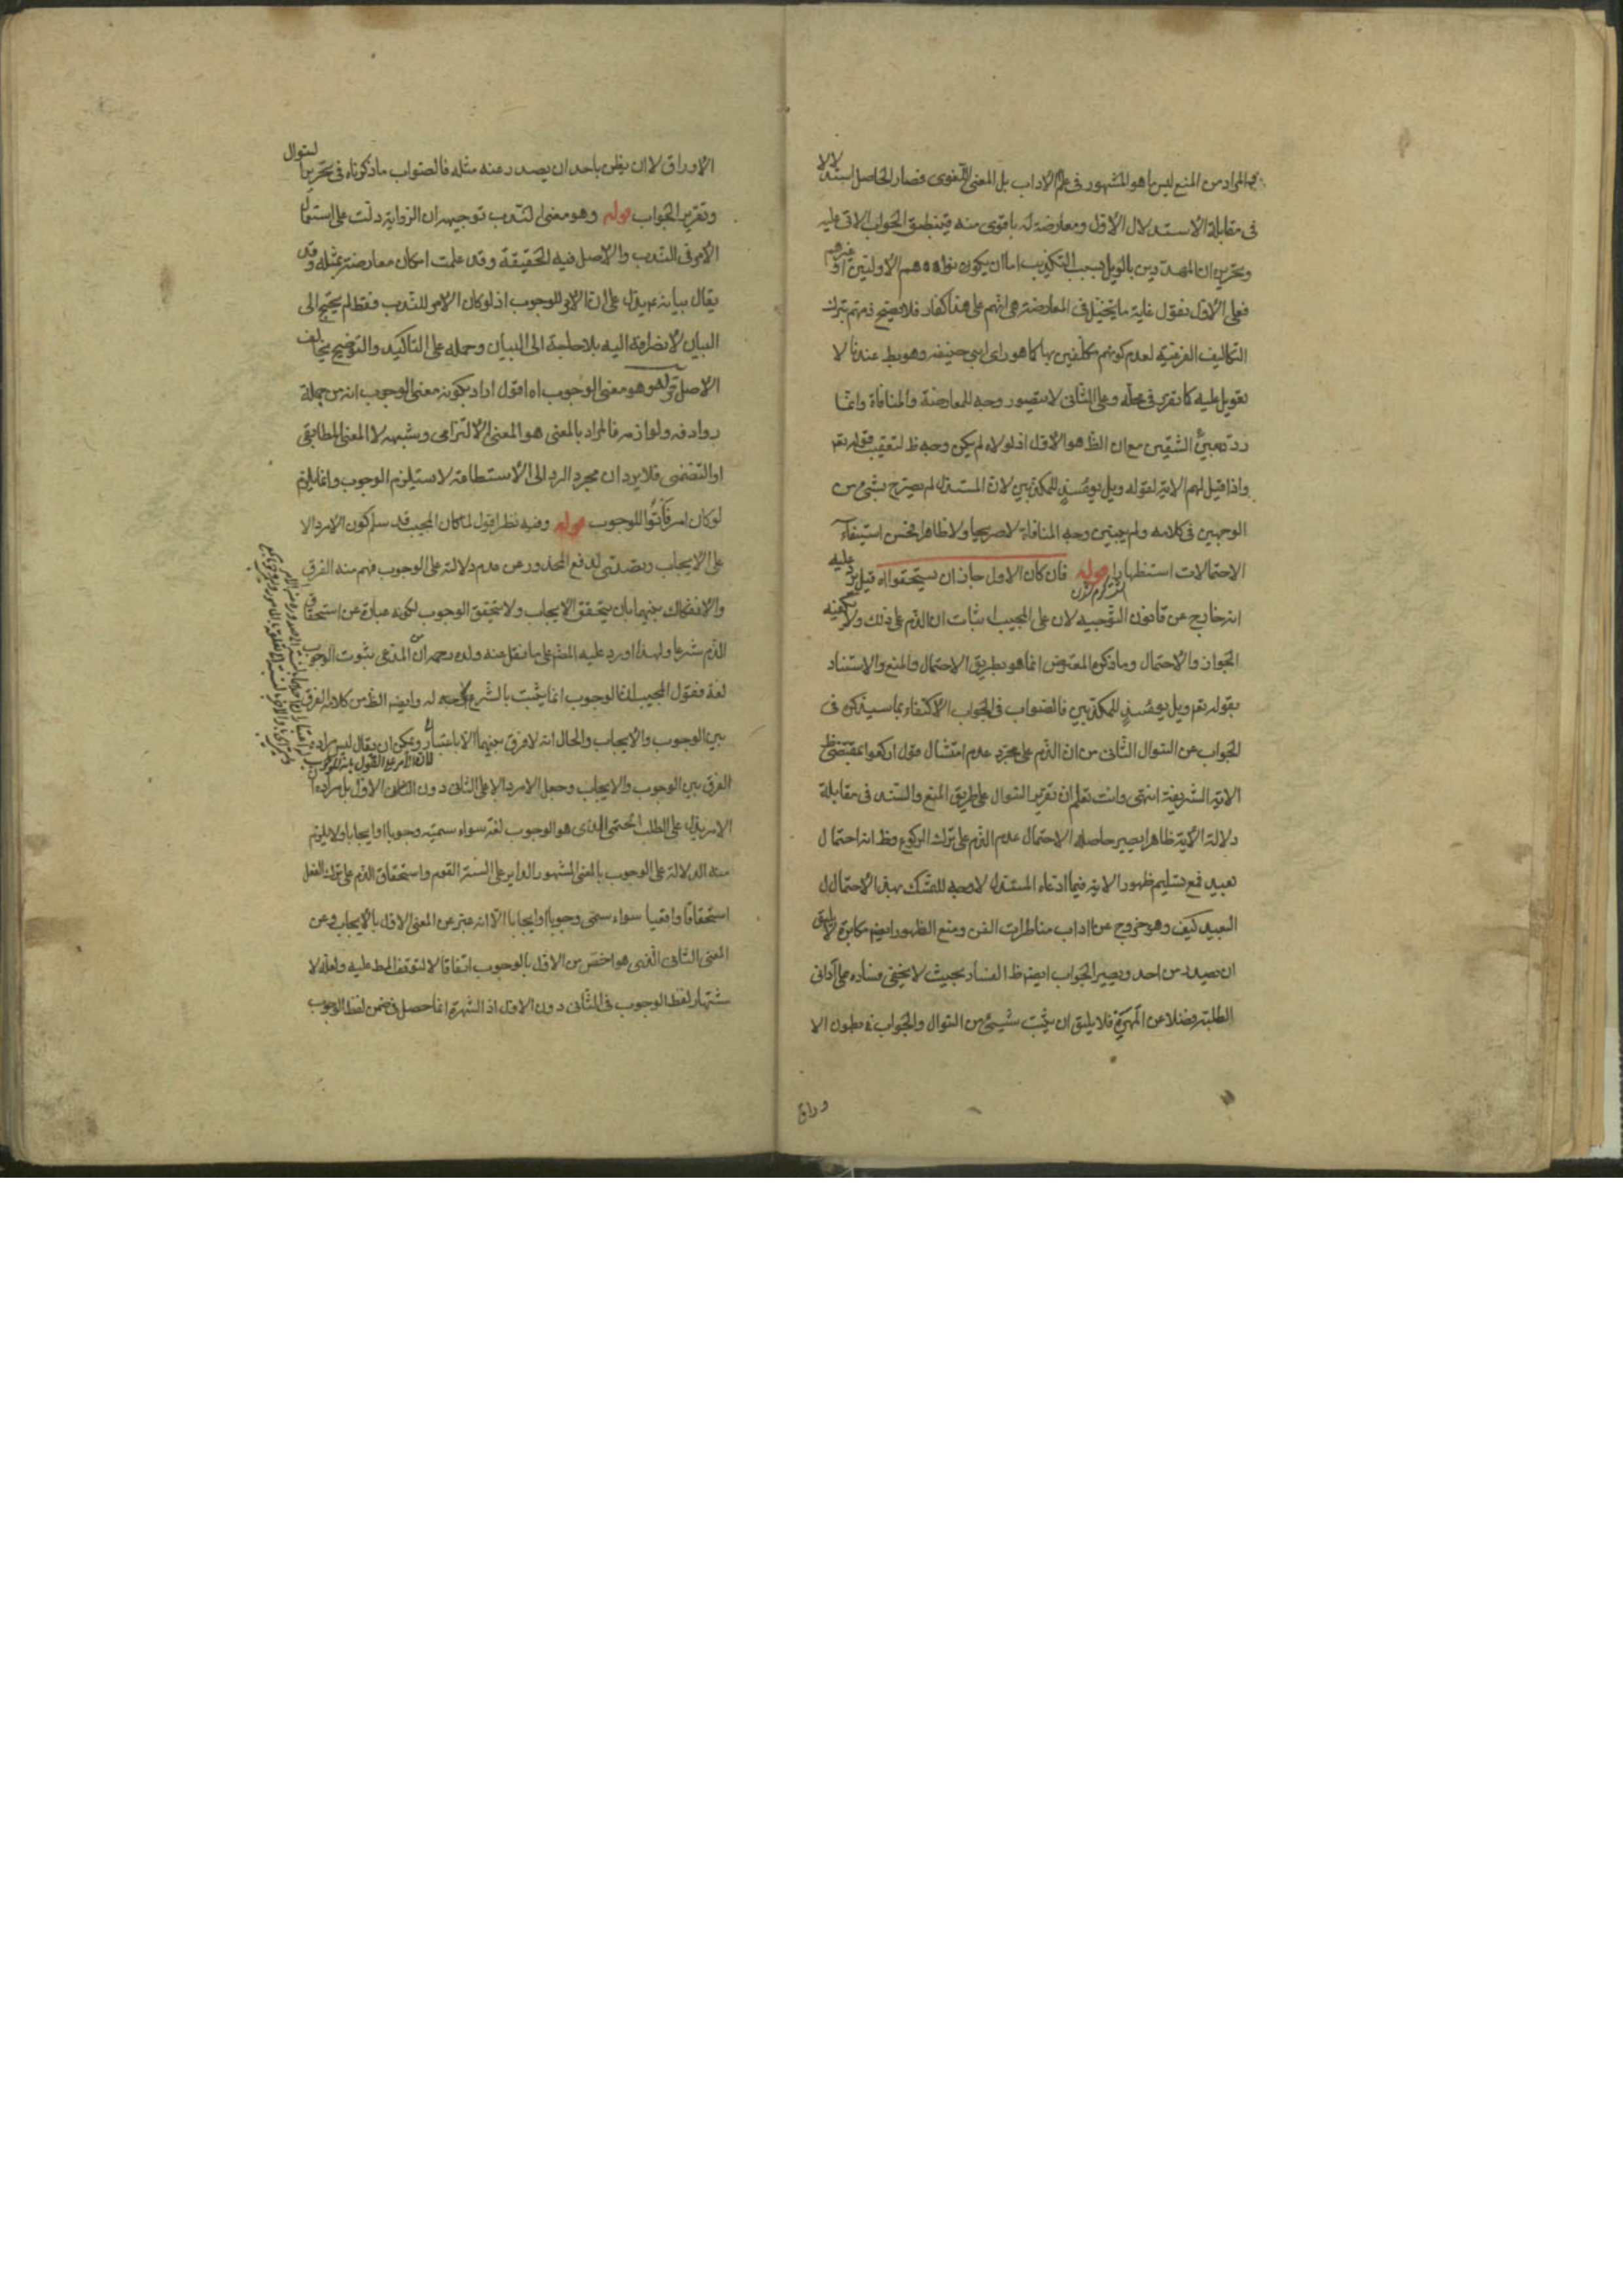 المراد من المنع ليس ما هو المشهور في علم الاداب بل المعنى اللغوي فصار الحاصل استدلالا
في مقابلة الاستدلال الاول ومعارضة له باقوى منه فينطبق الجواب الاتي عليه
وتحريره ان المهددين بالويل بسبب التكذيب اما ان يكونوا هم الاولين او غيرهم
فعلى الاول نقول غاية ما يتخيل في المعارضة هي انهم على هذا كفار فلا يصح ذمهم بترك
التكاليف الفرعية لعدم كونهم مكلفين بها كما هو راى ابي حنيفه وهو بط عندنا لا
تعويل عليه كما تقرر في محله وعلى الثاني لا يتصور وجه للمعارضة والمنافاة وانما
ردد بين الشقين مع ان الظ هو الاول اذ لولاه لم يكن وجه ظ لتعقيب قوله تع
واذا قيل لهم الاية لقوله ويل يومئذ للمكذبين لان المستدل لم يصرح بشئ من
الوجهين في كلامه ولم يبين وجه المنافاة لا صريحا ولا ظاهرا فحسن استيفاء
الاحتمالات استظهارا قوله فان كان الاول جاز ان يستحقوا اه قيل يرد عليه
انه خارج عن قانون التوجيه لان على المجيب اثبات ان الذم على ذلك ولا يكفيه
الجواز والاحتمال وما ذكره المعترض انما هو بطريق الاحتمال والمنع والاستناد
بقوله تع ويل يومئذ للمكذبين فالصواب في الجواب الاكتفاء بما سيذكره في
الجواب عن السوال الثاني من ان الذم على مجرد عدم امتثال قول اركعوا بمقتضى ظ
الاية الشريفة انتهى وانت تعلم ان تقرير السوال على طريق المنع والسند في مقابلة
دلالة الاية ظاهرا يصير حاصله الاحتمال عدم الذم على ترك الركوع وظ انه احتمال
بعيد فمع تسليم ظهور الاية فيما ادعاه المستدل لا وجه للتمسك بهذا الاحتمال
البعيد كيف وهو خروج عن اداب مناظرات الفن ومنع الظهور ايضا مكابرة لا يليق
ان يصدر من احد ويصير الجواب ايضا ظ الفساد بحيث لا يخفى فساده على اداني
الطلبة فضلا عن المهرة فلا يليق ان يثبت شيئ من السوال والجواب في بطون الا
وراق
الاوراق لا ان يظن باحد ان يصدر عنه مثله فالصواب ما ذكرناه في تحرير السوال
وتقرير الجواب قوله وهو معنى الندب توجيهه ان الرواية دلت على استعمال
الامر في الندب والاصل فيه الحقيقة وقد علمت امكان معارضته بمثله وقد
يقال بيانه ع يدل على ان الامر للوجوب اذ لو كان الامر للندب فقط لم يحتج الى
البيان لانصرافه اليه بلا حاجة الى البيان وحمله على التاكيد والتوضيح يخالف
الاصل قوله وهو معنى الوجوب اه اقول اراد بكونه معنى الوجوب انه من جملة
روادفه ولوازمه فالمراد بالمعنى هو المعنى الالتزامي وشبهه لا المعنى المطابقي
او التضمني فلا يرد ان مجرد الرد الى الاستطاعة لا يستلزم الوجوب وانما يلزم
لو كان امر فأتوا للوجوب قوله وفيه نظر اقول لما كان المجيب قد سلم كون الامر دالا
على الايجاب وتصدى لدفع المحذور عن عدم دلالته على الوجوب فهم منه الفرق
والانفكاك بينهما بان يتحقق الايجاب ولا يتحقق الوجوب لكونه عبارة عن استحقاق
الذم شرعا ولهذا اورد عليه المص على ما نقل عنه ولده ان المدعى ثبوت الوجوب
لغة فقول المجيب انما الوجوب انما يثبت بالشرع لا وجه له وايضا الظ من كلامه الفرق
بين الوجوب والايجاب والحال انه لا فرق بينهما الا باعتبار ويمكن ان يقال ليس مراده
الفرق بين الوجوب والايجاب وجعل الامر دالا على الثاني دون الاول بل مراده ان
الامر يدل على الطلب الحتمي الذي هو الوجوب لغة سواء سميته وجوبا او ايجابا ولا يلزم
منه الدلالة على الوجوب بالمعنى المشهور الداير على السنة القوم واستحقاق الذم على ترك الفعل
استحقاقا واقعيا سواء سمى وجوبا او ايجابا الا انه عبر عن المعنى الاول بالايجاب وعن
المعنى الثاني الذي هو اخص من الاول بالوجوب اتفاقا لا لتوقف المط عليه ولعله لا
شتهار لفظ الوجوب في الثاني دون الاول اذ الشهرة انما حصل في ضمن لفظ الوجوب